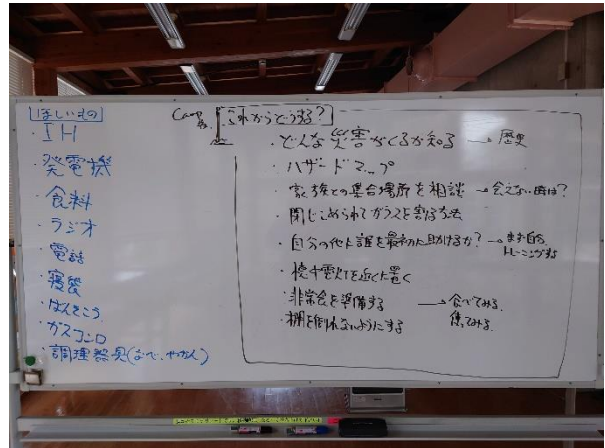 ほしいもの
・IH
・発電機
・食料
・ラジオ
・電話
・寝袋
・ばんそうこう
・ガスコンロ
・調理器具(なべ、やかん)
Camp
これからどうする?
・どんな災害がくるか知る → 歴史
・ハザードマップ
・家族との集合場所を相談 → 会えない時は?
・閉じこめられてガラスを割る方法
・自分の他に誰を最初に助けるか? → まず自分、
トレーニングする
・懐中電灯を近くに置く
・非常食を準備する → 食べてみる
・棚を倒れないようにする 使ってみる